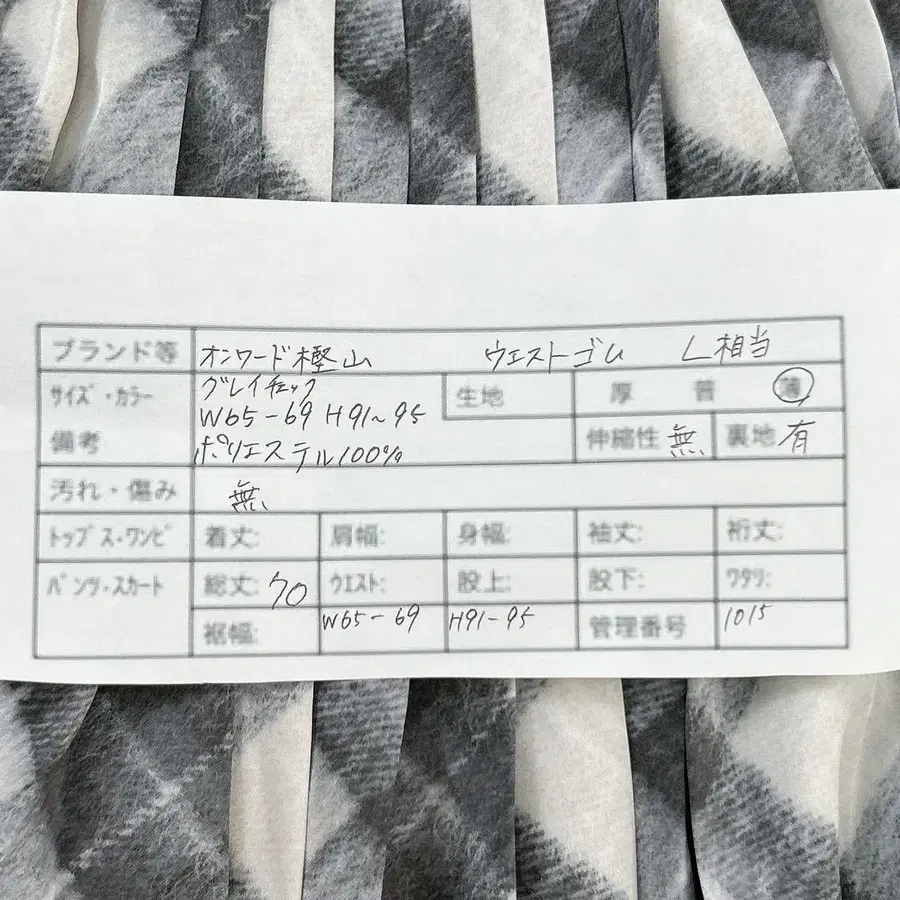 ブランド等 オンワード樫山 ウエストゴム L相当
サイズ・カラー グレイチェック 生地 厚 普 薄
W65-69 H91~95
備考 ポリエステル100% 伸縮性 無 裏地 有
汚れ・傷み 無
トップス・ワンピ 着丈: 肩幅: 身幅: 袖丈: 裄丈:
パンツ・スカート 総丈: 70 ウエスト: 股上: 股下: ワタリ:
裾幅: W65-69 H91-95 管理番号 1015